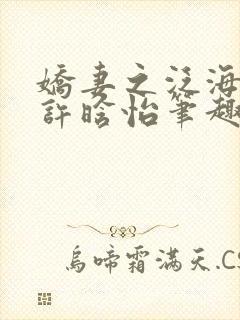 嬌妻之泛海
許晗怡筆趣
烏啼霜滿天.CS